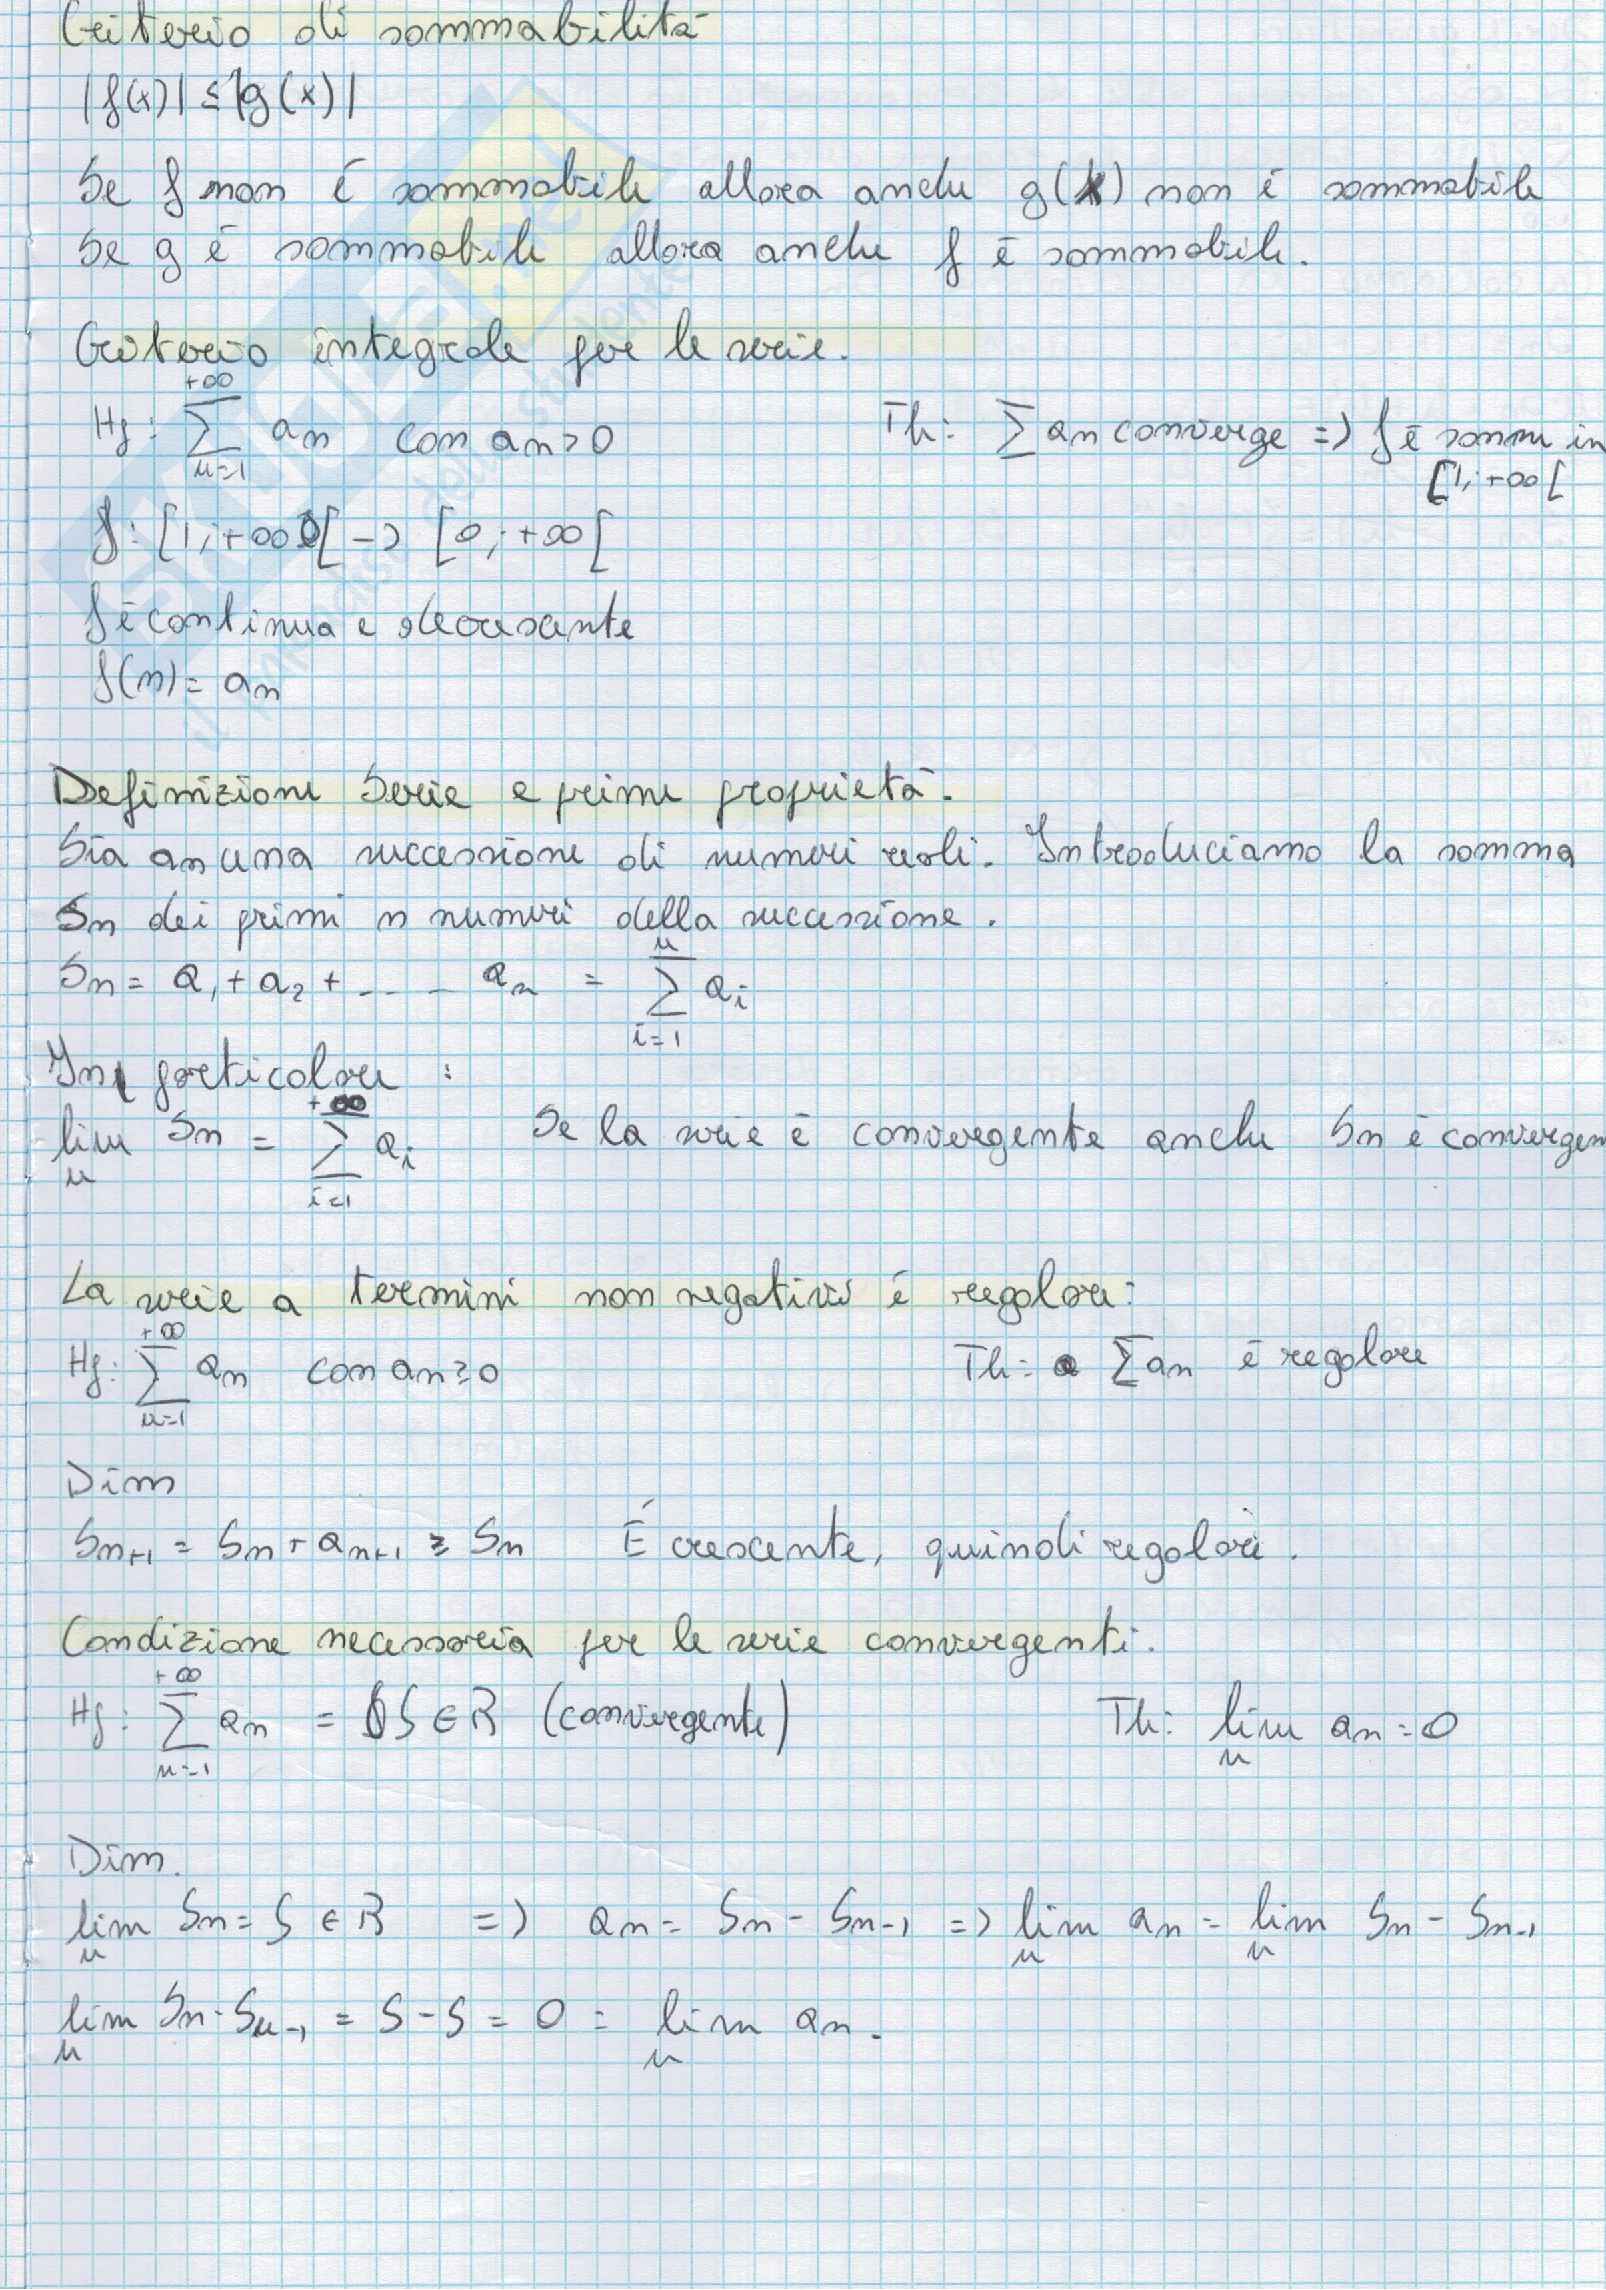 Criterio di sommabilità
|f(x)| ≤ |g(x)|
Se f non é sommabile allora anche g(x) non é sommabile
Se g é sommabile allora anche f é sommabile.
Criterio integrale per le serie.
Hp: \sum_{n=1}^{+∞} a_n con a_n > 0 Th: ∑ a_n converge => f é somm in
[1; +∞[
f: [1; +∞[ -> [0; +∞[
f é continua e decrescente
f(n) = a_n
Definizione Serie e prime proprietà.
Sia a_n una successione di numeri reali. Introduciamo la somma
S_n dei primi n numeri della successione.
S_n = a_1 + a_2 + ---- a_n = \sum_{i=1}^{n} a_i
In particolare :
lim_n S_n = \sum_{i=1}^{+∞} a_i Se la serie é convergente anche S_n é convergen
La serie a termini non negativi é regolare:
Hp: \sum_{n=1}^{+∞} a_n con a_n ≥ 0 Th: ∑ a_n é regolare
Dim
S_{n+1} = S_n + a_{n+1} ≥ S_n É crescente, quindi regolare.
Condizione necessaria per le serie convergenti.
Hp: \sum_{n=1}^{+∞} a_n = S ∈ R (convergente) Th: lim_n a_n = 0
Dim.
lim_n S_n = S ∈ R => a_n = S_n - S_{n-1} => lim_n a_n = lim_n S_n - S_{n-1}
lim_n S_n - S_{n-1} = S - S = 0 = lim_n a_n.